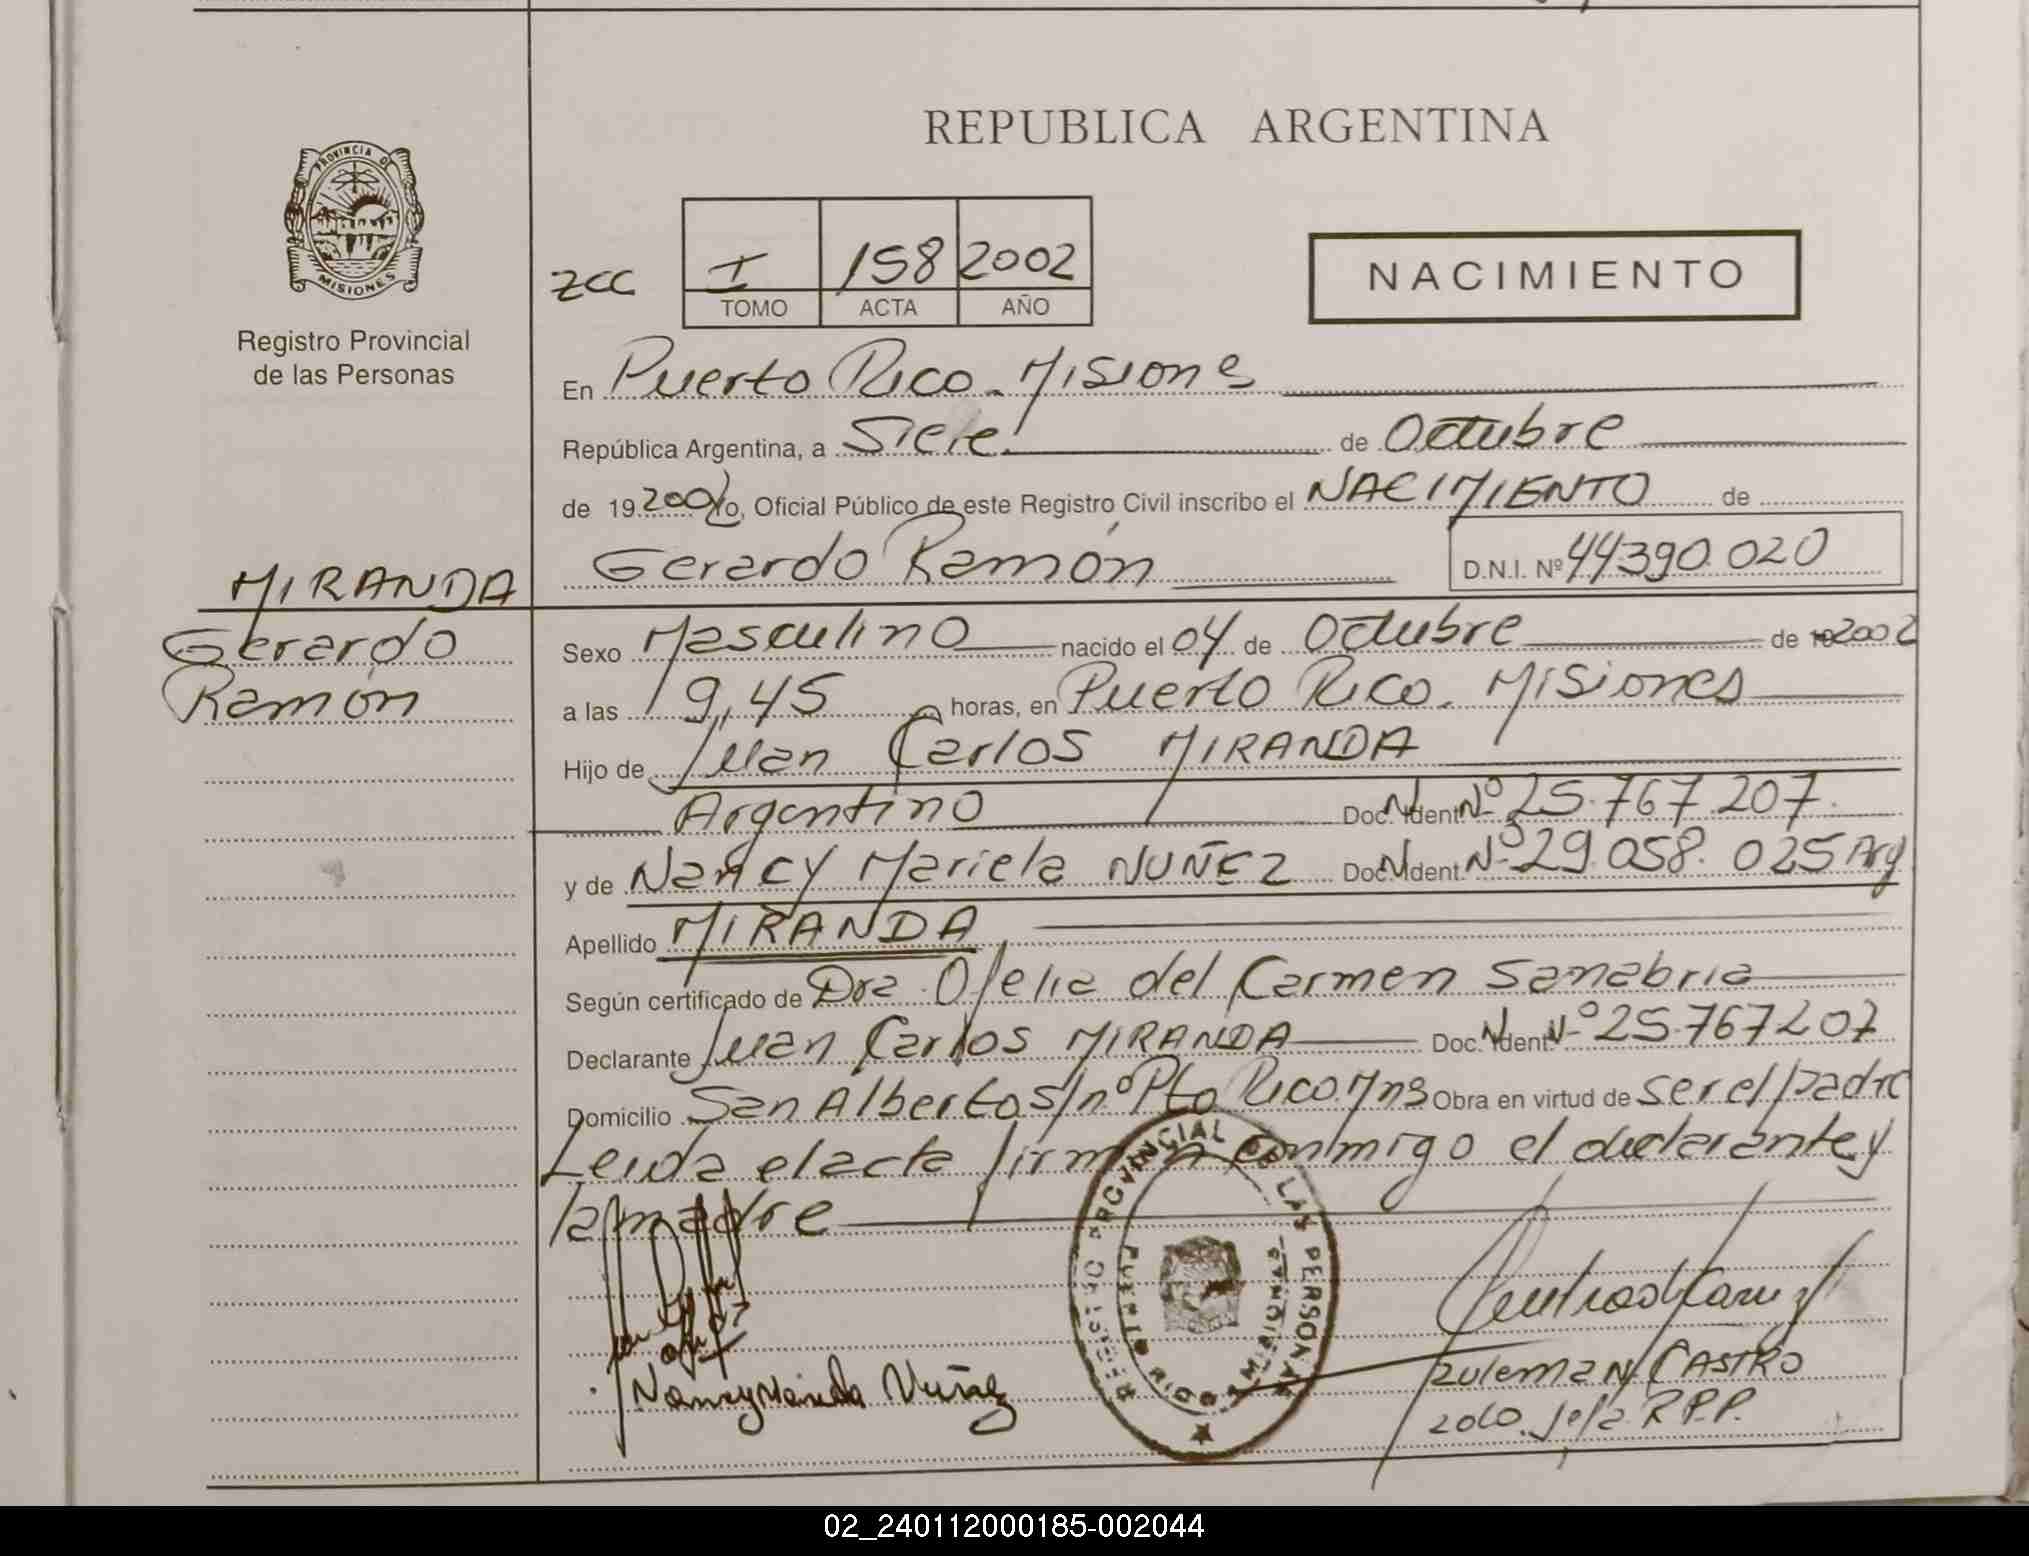 REPUBLICA ARGENTINA
PROVINCIA DE
MISIONES
Registro Provincial
de las Personas
ZCC
I 158 2002
TOMO ACTA AÑO
NACIMIENTO
En Puerto Rico. Misiones
República Argentina, a Siete de Octubre
de 19 2002 yo, Oficial Público de este Registro Civil inscribo el NACIMIENTO de
Gerardo Ramón D.N.I. Nº 44390.020
MIRANDA
Gerardo
Ramón
Sexo Masculino nacido el 04 de Octubre de 19 2002
a las 19,45 horas, en Puerto Rico. Misiones
Hijo de Juan Carlos MIRANDA
Argentino Doc. N. Ident Nº 25.767.207.
y de Nancy Mariela NUÑEZ Doc. N. Ident. Nº 29.058.025 Arg
Apellido MIRANDA
Según certificado de Dra. Ofelia del Carmen Sanabria
Declarante Juan Carlos MIRANDA Doc. N. Ident. Nº 25.767207
Domicilio San Alberto s/nº Pto Rico. Mns Obra en virtud de ser el padre
Leida el acta firman conmigo el declarante y
la madre
REGISTRO PROVINCIAL DE LAS PERSONAS
PUERTO RICO
MISIONES
Nancy Mariela Nuñez
Zulema N. CASTRO
Jefa R.P.P.
02_240112000185-002044